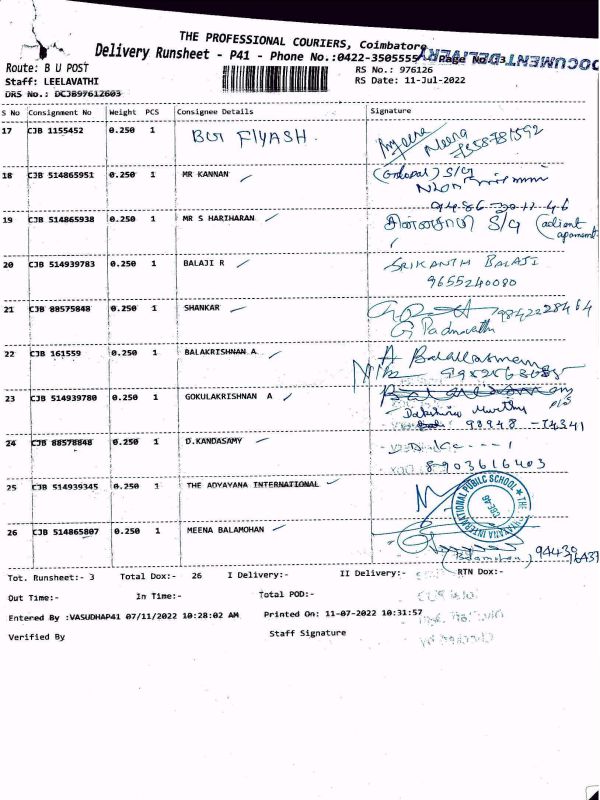 THE PROFESSIONAL COURIERS, Coimbatore
Delivery Runsheet - P41 - Phone No.:0422-3505555
DOCUMENT DELIVERY
Route: B U POST
RS No.: 976126
Staff: LEELAVATHI
RS Date: 11-Jul-2022
DRS No.: DCJB97612603
S No Consignment No Weight PCS Consignee Details Signature
17 CJB 1155452 0.250 1 BUI FIYASH
Neena
18 CJB 514865951 0.250 1 MR KANNAN (Gopal) S/G
9486 30 11 46
19 CJB 514865938 0.250 1 MR S HARIHARAN S/G
20 CJB 514939783 0.250 1 BALAJI R SRIKANTH BALAJI
9655240080
21 CJB 88575848 0.250 1 SHANKAR 9842228464
G Padmavathi
22 CJB 161559 0.250 1 BALAKRISHNAN A A Balakrishnan
23 CJB 514939780 0.250 1 GOKULAKRISHNAN A
98948 - 14341
24 CJB 88578848 0.250 1 D.KANDASAMY
8903616403
25 CJB 514939345 0.250 1 THE ADYAYANA INTERNATIONAL
INTERNATIONAL PUBLIC SCHOOL ★ THE
26 CJB 514865807 0.250 1 MEENA BALAMOHAN
94439
76437
Tot. Runsheet:- 3 Total Dox:- 26 I Delivery:- II Delivery:- RTN Dox:-
Out Time:- In Time:- Total POD:-
Entered By :VASUDHAP41 07/11/2022 10:28:02 AM Printed On: 11-07-2022 10:31:57
Verified By Staff Signature